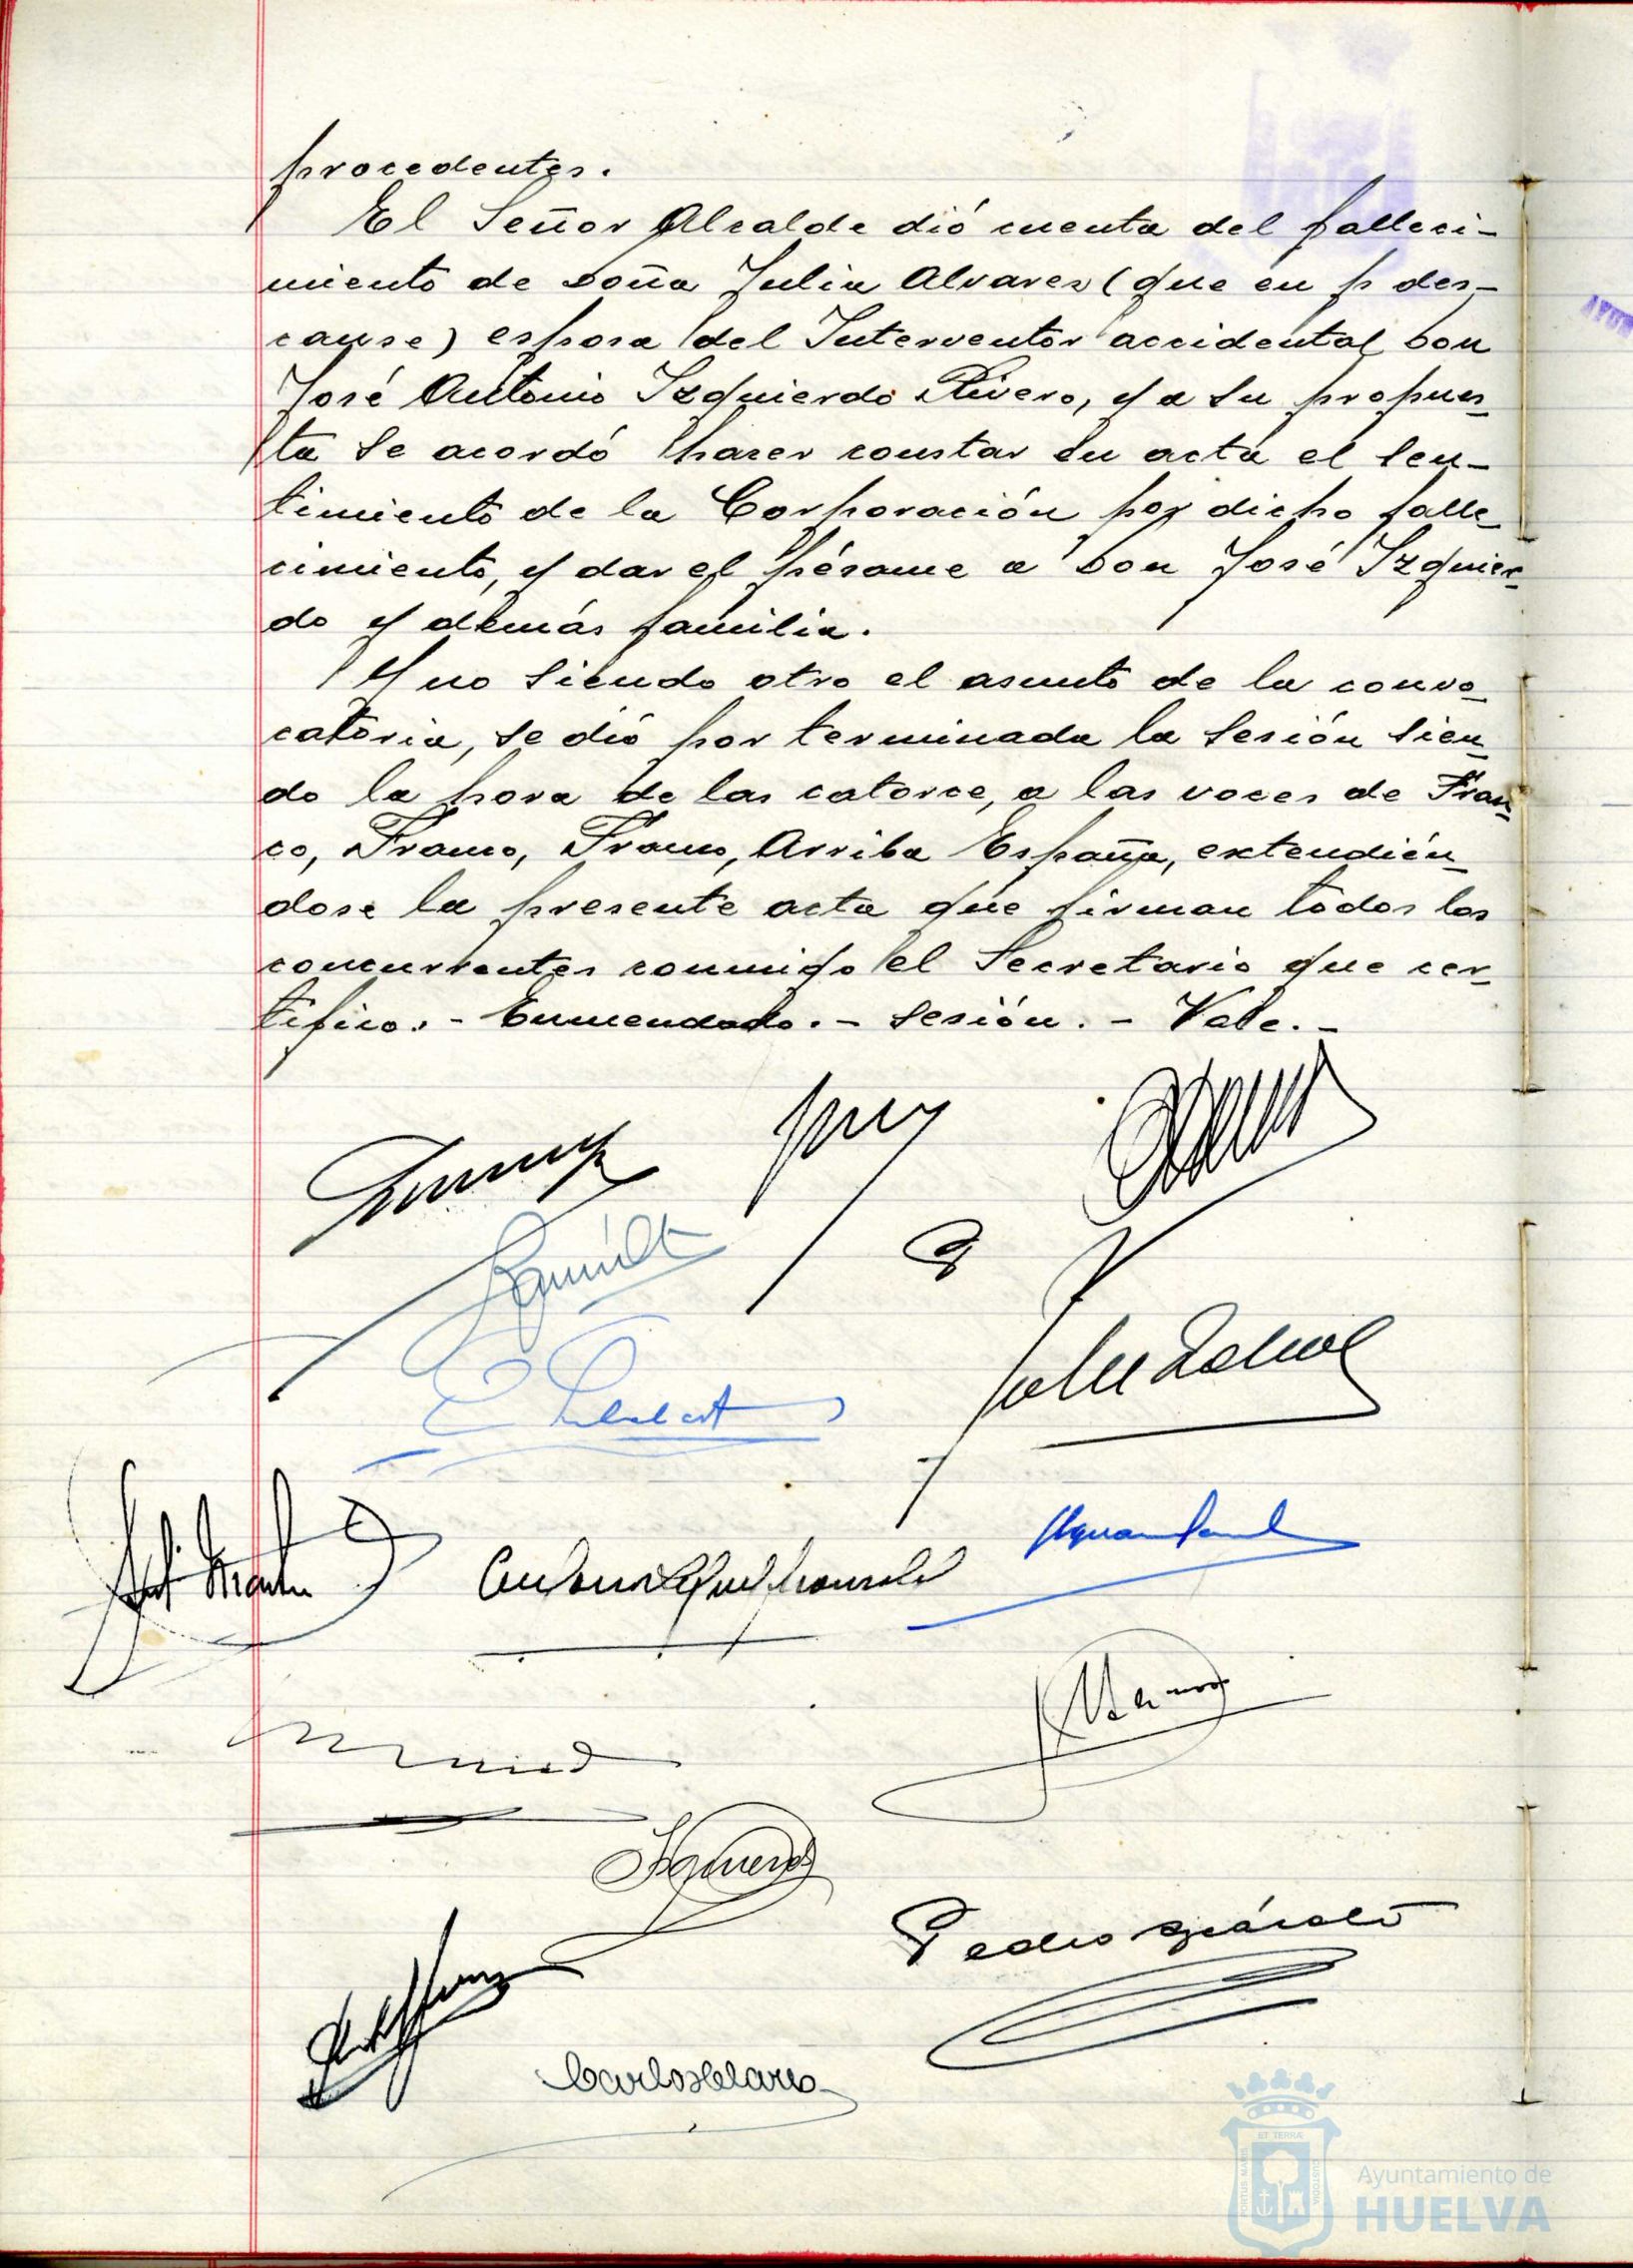 procedentes.
El Señor Alcalde dió cuenta del falleci-
miento de Doña Julia Alvarez (que en p des-
canse) esposa del Interventor accidental Don
José Antonio Izquierdo Rivero, y a su propues-
ta se acordó hacer constar en acta el sen-
timiento de la Corporación por dicho falle-
cimiento, y dar el pésame a Don José Izquier-
do y demás familia.
Y no siendo otro el asunto de la convo-
catoria, se dió por terminada la sesión sien-
do la hora de las catorce, a las voces de Fran-
co, Franco, Franco, Arriba España, extendién-
dose la presente acta que firman todos los
concurrentes conmigo el Secretario que cer-
tifico.- Enmendado.- sesión.- Vale.-
Pedro
Carlos
Ayuntamiento de
HUELVA